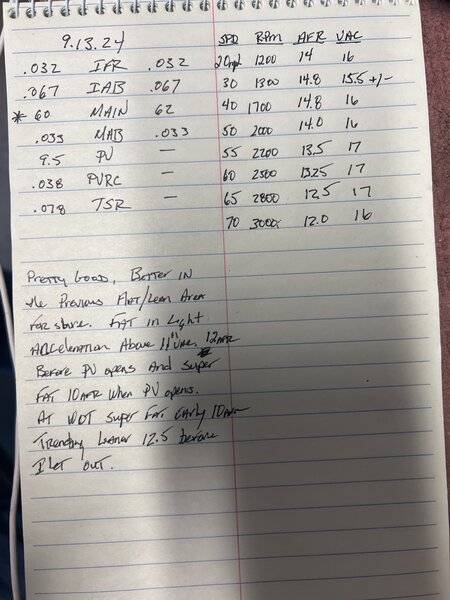 9.13.24
.032 IFR .032
.067 IAB .067
* 60 MAIN 62
.033 MAB .033
9.5 PV —
.038 PVRC —
.078 TSR —
SPD RPM AFR VAC
20mph 1200 14 16
30 1300 14.8 15.5 +/-
40 1700 14.8 16
50 2000 14.0 16
55 2200 13.5 17
60 2500 13.25 17
65 2800 12.5 17
70 3000 12.0 16
Pretty Good, Better in
the Previous Flat/Lean Area
For sure. FAT in Light
Acceleration Above 11" VAC, 12 AFR
Before PV opens And super
FAT 10 AFR when PV opens.
At WOT super FAT early 10 AFR
Trending Leaner 12.5 before
I Let OUT.